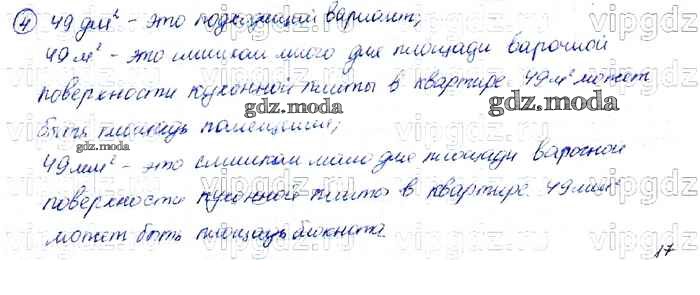 ④ 49 дм² - это подходящий вариант;
49 м² - это слишком много для площади варочной
поверхности кухонной плиты в квартире. 49 м² может
быть площадь помещения;
49 мм² - это слишком мало для площади варочной
поверхности кухонной плиты в квартире. 49 мм²
может быть площадь блокнота.
17
gdz.moda
gdz.moda
gdz.moda
gdz.moda
vipgdz